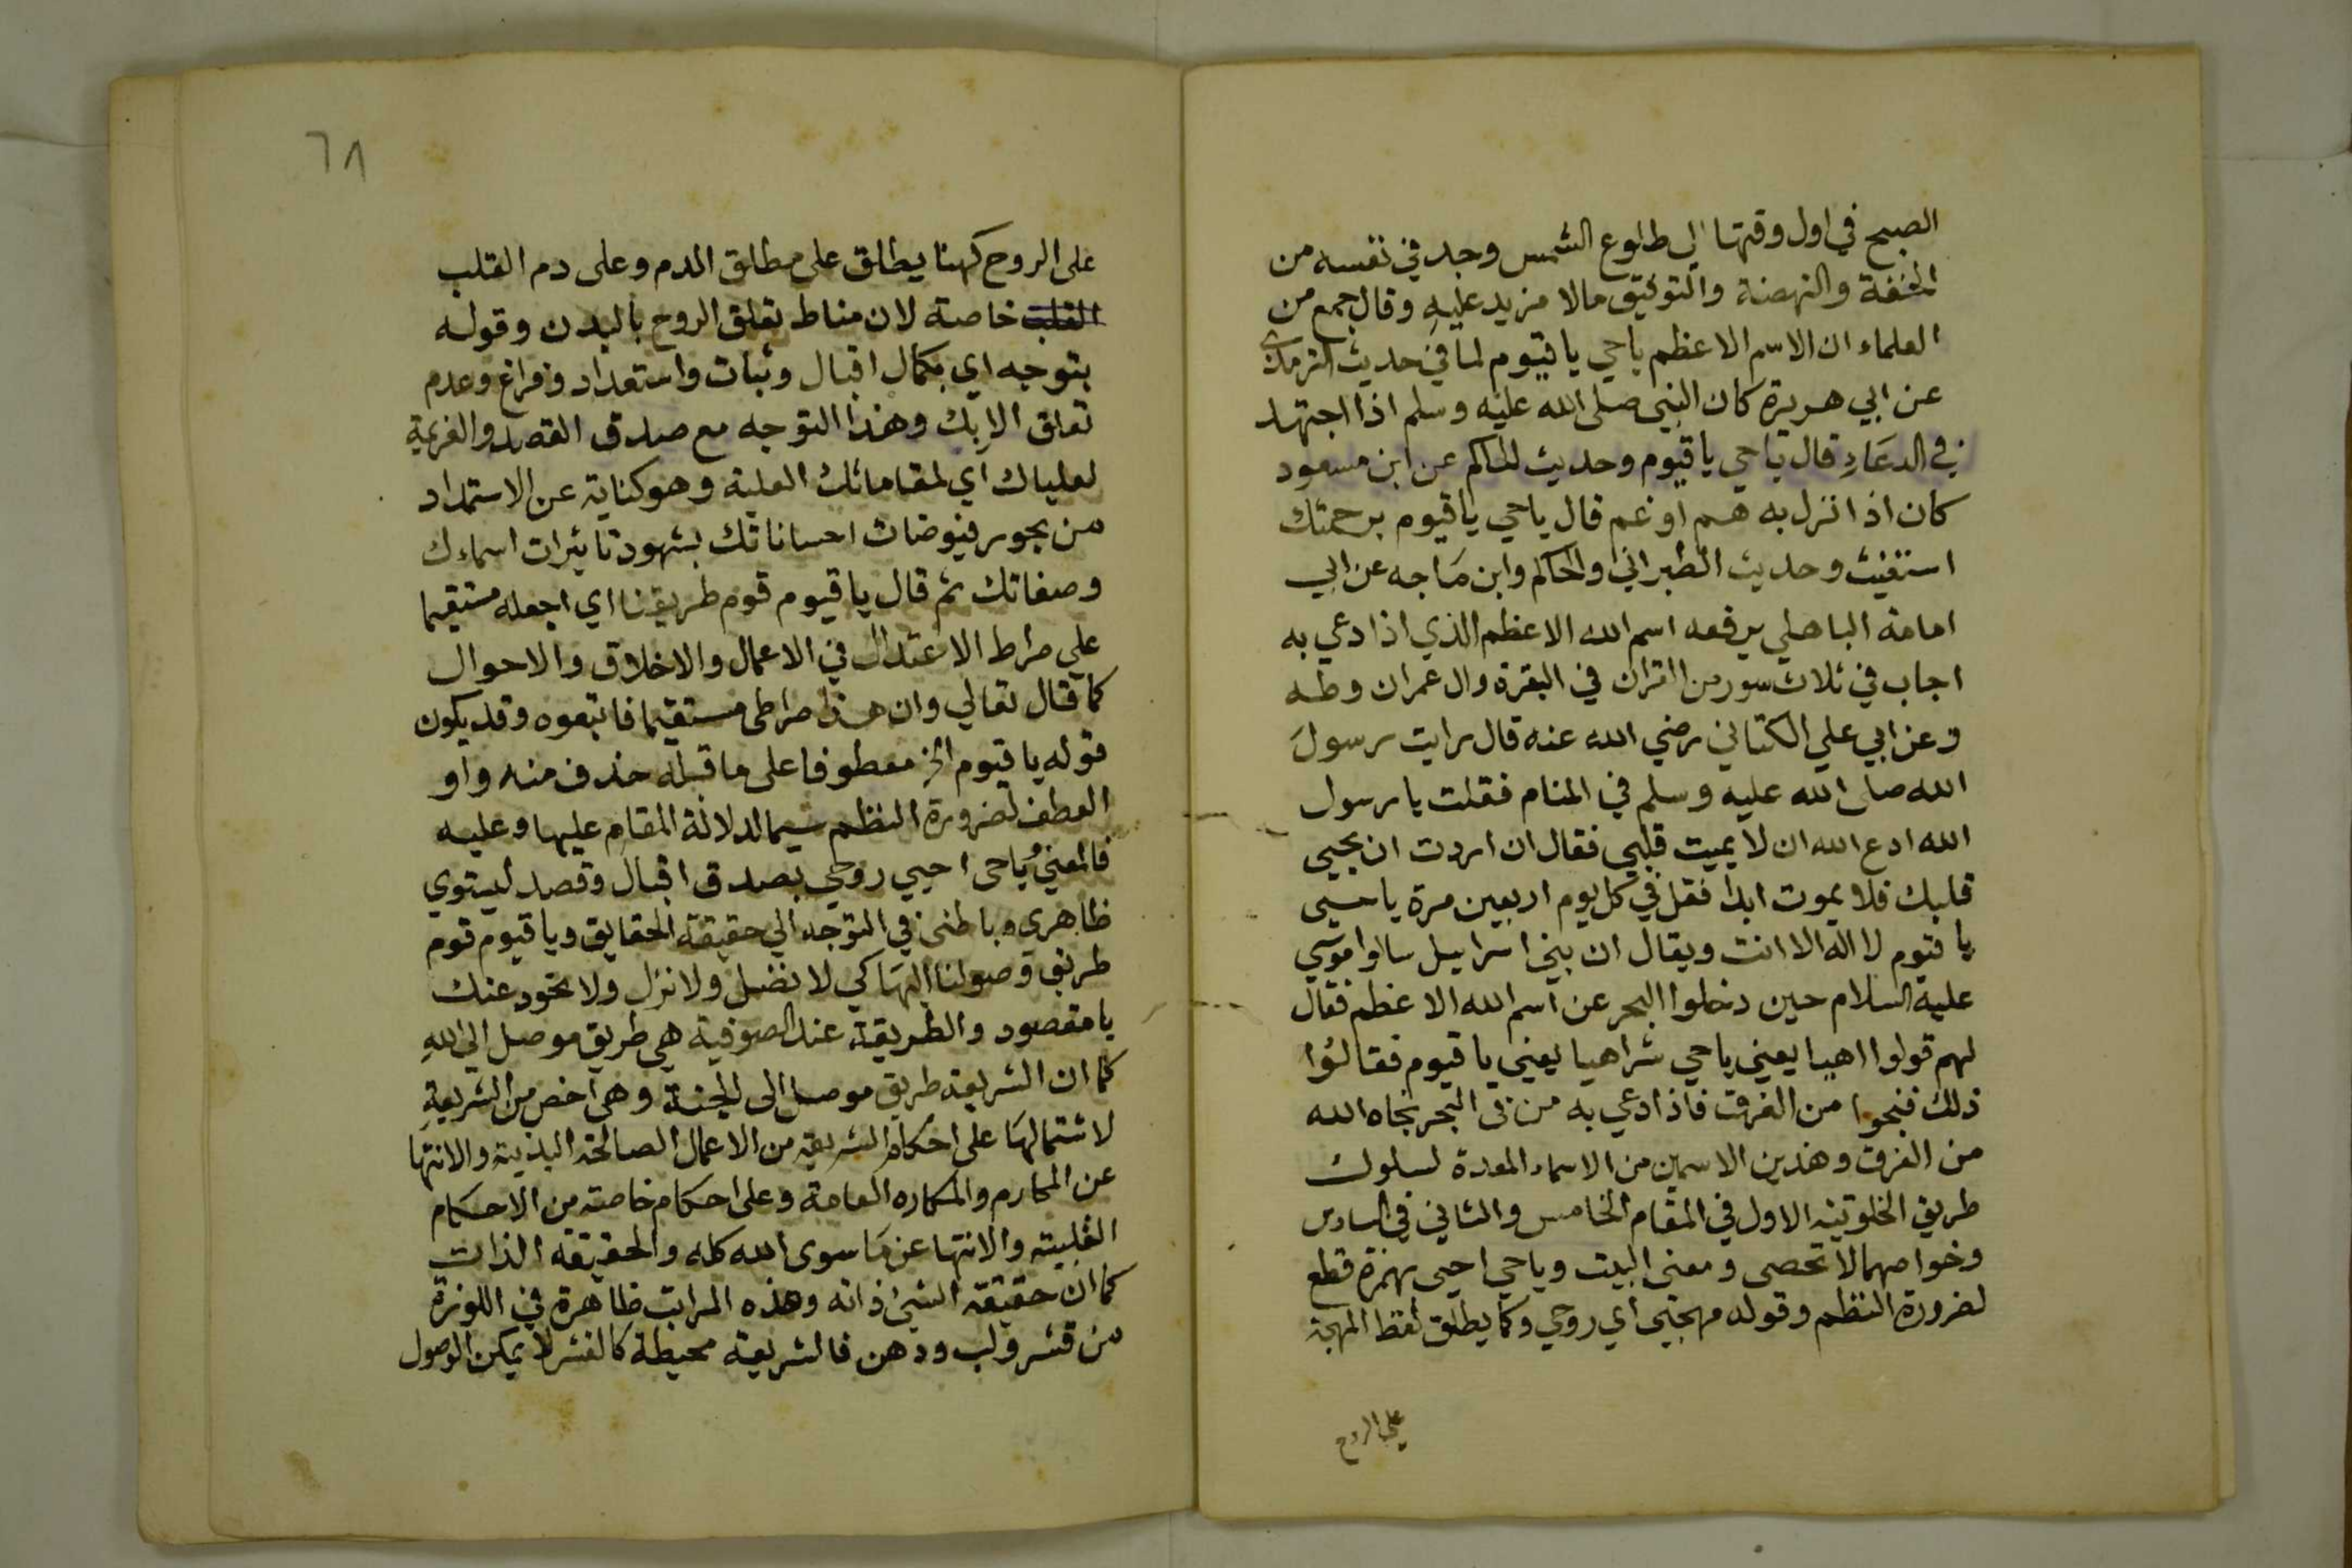 الصبح في اول وقتها الي طلوع الشمس وجد في نفسه من
الخفة والنهضة والتوفيق مالا مزيد عليه وقال جمع من
العلماء ان الاسم الاعظم ياحي يا قيوم لما في حديث الترمذي
عن ابي هريرة كان النبي صلى الله عليه وسلم اذا اجتهد
في الدعاء قال ياحي يا قيوم وحديث الحاكم عن ابن مسعود
كان اذا نزل به هم او غم قال ياحي يا قيوم برحمتك
استغيث وحديث الطبراني والحاكم وابن ماجه عن ابي
امامة الباهلي يرفعه اسم الله الاعظم الذي اذا دعي به
اجاب في ثلاث سور من القران في البقرة وال عمران وطه
وعن ابي علي الكتاني رضي الله عنه قال رايت رسول
الله صلى الله عليه وسلم في المنام فقلت يا رسول
الله ادع الله ان لا يميت قلبي فقال ان اردت ان يحيي
قلبك فلا يموت ابدا فقل في كل يوم اربعين مرة يا حي
يا قيوم لا اله الا انت ويقال ان بني اسراييل سالوا موسي
عليه السلام حين دخلوا البحر عن اسم الله الاعظم فقال
لهم قولوا اهيا يعني ياحي شراهيا يعني يا قيوم فقالوا
ذلك فنجوا من الغرق فاذا دعي به من في البحر نجاه الله
من الغرق وهذين الاسمين من الاسماء المعدة لسلوك
طريق الخلوتيه الاول في المقام الخامس والثاني في السادس
وخواصهما لا تحصى ومعنى البيت وياحي احيى بهمزة قطع
لضرورة النظم وقوله مهجتي اي روحي وكما يطلق لفظ المهجة
علي الروح
٦٨
على الروح كهنا يطلق على مطلق الدم وعلى دم القلب
القلب خاصة لان مناط تعلق الروح بالبدن وقوله
بتوجه اي بكمال اقبال وثبات واستعداد وفراغ وعدم
تعلق الا بك وهذا التوجه مع صدق القصد والعزيمة
لعلياك اي لمقاماتك العلية وهو كناية عن الاستمداد
من بحور فيوضات احساناتك بشهود تاثيرات اسماءك
وصفاتك ثم قال يا قيوم قوم طريقنا اي اجعله مستقيما
على صراط الاعتدال في الاعمال والاخلاق والاحوال
كما قال تعالي وان هذا صراطي مستقيما فاتبعوه وقد يكون
قوله يا قيوم الخ معطوفا على ما قبله حذف منه واو
العطف لضرورة النظم سيما لدلالة المقام عليها وعليه
فالمعني ياحى احيي روحي بصدق اقبال وقصد ليستوي
ظاهري وباطني في التوجه الي حقيقة الحقايق ويا قيوم قوم
طريق وصولنا اليها كي لا نضل ولا نزل ولا نحود عنك
يا مقصود والطريقة عند الصوفية هي طريق موصل الي الله
كما ان الشريعة طريق موصل الى الجنة وهي اخص من الشريعة
لاشتمالها على احكام الشريعه من الاعمال الصالحة البدنية والانتها
عن المحارم والمكاره العامة وعلى احكام خاصة من الاحكام
القلبيه والانتها عن ما سوى الله كله والحقيقه الذات
كما ان حقيقة الشئ ذاته وهذه المراتب ظاهرة في اللوزة
من قشر ولب ودهن فالشريعة محيطة كالقشر لا يمكن الوصول